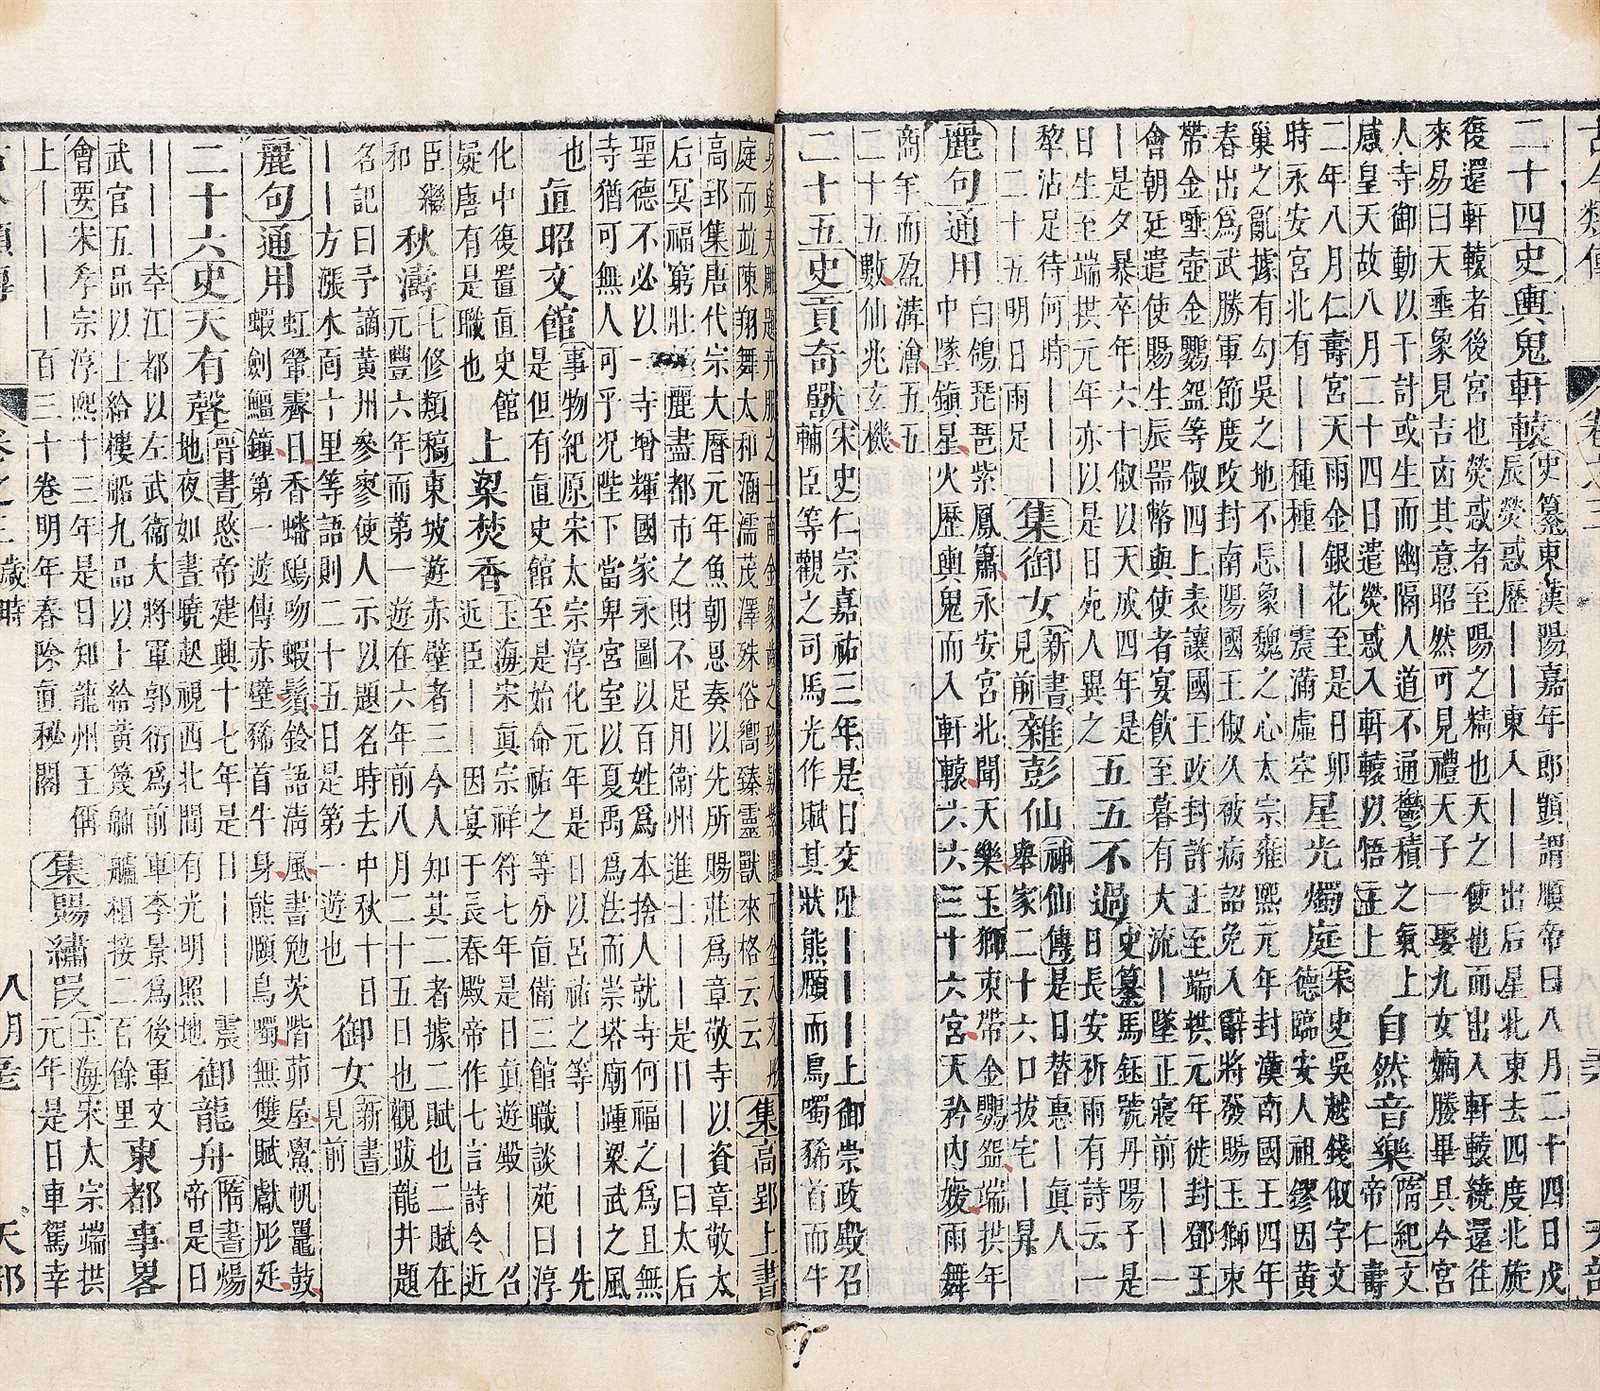 二十四史輿鬼軒轅
史纂東漢陽嘉年郎顗謂順帝曰八月二十四日戊
辰熒惑歷——東入——出后星北東去四度北旋
復還軒轅者後宮也熒惑者至陽之精也天之使也而出入軒轅繞還往
來易曰天垂象見吉凶其意昭然可見禮天子一娶九女嫡媵畢具今宮
人寺御動以千計或生而幽隔人道不通鬱積之氣上
感皇天故八月二十四日遣熒惑入軒轅以悟主上
自然音樂
隋紀文
帝仁壽
二年八月仁壽宮天雨金銀花至是日卯
時永安宮北有——種種——震滿虛空
星光燭庭
宋史吳越錢俶字文
德臨安人祖鏐因黃
巢之亂據有勾吳之地不忘象魏之心太宗雍熙元年封漢南國王四年
春出爲武勝軍節度攺封南陽國王俶久被病詔免入辭將發賜玉獅柬
帶金唾壺金鸚盌等俶四上表讓國王攺封許王至端拱元年徙封鄧王
會朝廷遣使賜生辰噐幣與使者宴飲至暮有大流—墜正寢前———
—是夕暴卒年六十俶以天成四年是
日生至端拱元年亦以是日
五五不過
史纂馬鈺號丹陽子是
日長安祈雨有詩云一
犂沾足待何時———
—二十五明日雨足
集御女
新書
見前
雜彭仙
神仙傳是日替惠—眞人
舉家二十六口拔宅—昇
麗句通用
白鴿琵琶紫鳳簫永安宮北聞天樂玉獅柬帶金鸚盌端拱年
中墜鎖星火歷輿鬼而入軒轅六六三十六宮天矜內媛雨舞
商羊而盈溝澮五五
二十五數仙兆玄機
二十五史貢奇獸
宋史仁宗嘉祐三年是日交阯————上御崇政殿召
輔臣等觀之司馬光作賦其狀熊顧而鳥噣豨首而牛
庭而竝陳翔舞太和涵濡茂澤殊俗嚮臻靈獸來格云云
集高郢上書
高郢集唐代宗大曆元年魚朝恩奏以先所賜莊爲章敬寺以資章敬太
后冥福窮壯極麗盡都市之財不足用衞州進士——是日——曰太后
聖德不必以一寺增輝國家永圖以百姓爲本捨人就寺何福之爲且無
寺猶可無人可乎况陛下當卑宮室以夏禹爲法而崇塔廟踵梁武之風
也
直昭文館
事物紀原宋太宗淳化元年是日以呂祐之等———先
是但有直史館至是始命祐之等分直備三館職談苑曰淳
化中復置直史館
疑唐有是職也
上梁焚香
玉海宋眞宗祥符七年是日眞遊殿——召
近臣——因宴于長春殿帝作七言詩令近
臣繼
和
秋濤
七修類稿東坡遊赤壁者三今人知其二者據二賦也二賦在
元豐六年而第一遊在六年前八月二十五日也觀跋龍井題
名記曰予謫黃州參寥使人示以題名時去中秋十日
——方漲水面十里等語則二十五日是第一遊也
御女
新書
見前
麗句通用
虹犖霽日香蟠鴟吻蝦鬚鈴語淸風書勉茨階茆屋鱟帆鼉鼓
蝦劍鱷鐘第一遊傳赤壁豨首牛身熊顧鳥噣無雙賦獻彤廷
二十六史天有聲
晋書愍帝建興十七年是日——震
地夜如晝曉起視西北間有光明照地
御龍舟
隋書煬
帝是日
——幸江都以左武衞大將軍郭衍爲前軍李景爲後軍文
武官五品以上給樓船九品以上給黃篾舳艫相接二百餘里
東都事畧
會要宋孝宗淳熙十三年是日知龍州王偁
上————百三十卷明年春除直秘閣
集賜繡叚
玉海宋太宗端拱
元年是日車駕幸
歲時
八月
天部